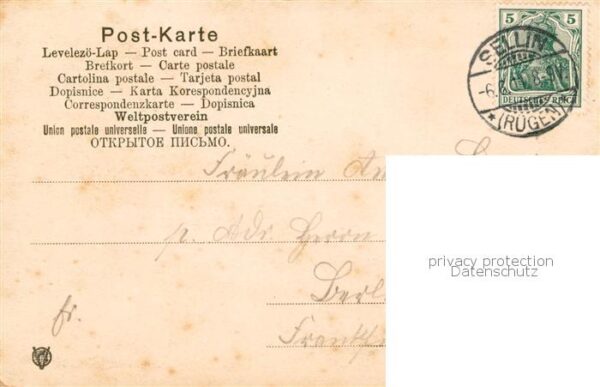 Post-Karte
Levelező-Lap — Post card — Briefkaart
Brefkort — Carte postale
Cartolina postale — Tarjeta postal
Dopisnice — Karta Korespondencyjna
Correspondenzkarte — Dopisnica
Weltpostverein
Union postale universelle — Unione postale universale
ОТКРЫТОЕ ПИСЬМО.
5 5
SELLIN
DEUTSCHES REICH
*(RÜGEN)
Fräulein
p. Adr. Herrn
Berl
Frankf
fr.
privacy protection
Datenschutz